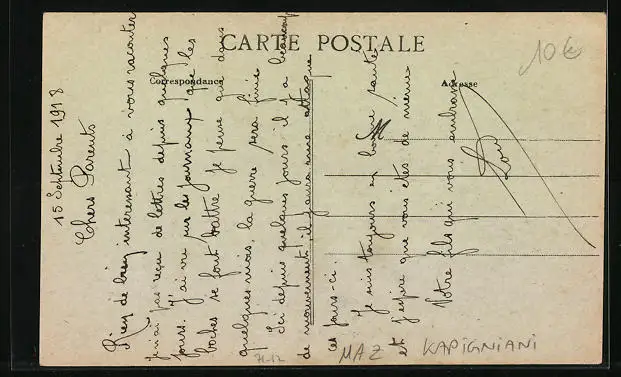 CARTE POSTALE
Correspondance
Adresse
M
10€
15 Septembre 1918
Chers Parents
Rien de bien interessant à vous raconter
je n'ai pas reçu de lettres depuis quelques
jours. J'ai vu sur les journaux que les
boches se font battre je pense que dans
quelques mois la guerre sera finie
Ici depuis quelques jours il y a beaucoup
de mouvements il y aura une attaque
ces jours-ci.
Je suis toujours en bonne santé
et j'espère que vous êtes de même
Votre fils qui vous embrasse
MAZ KAPIGNIANI